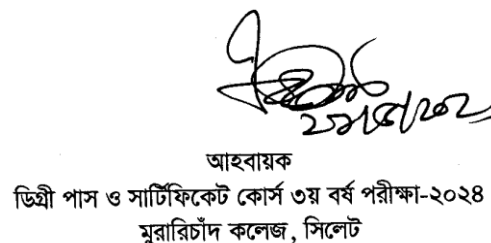 আহবায়ক
ডিগ্রী পাস ও সার্টিফিকেট কোর্স ৩য় বর্ষ পরীক্ষা-২০২৪
মুরারিচাঁদ কলেজ, সিলেট